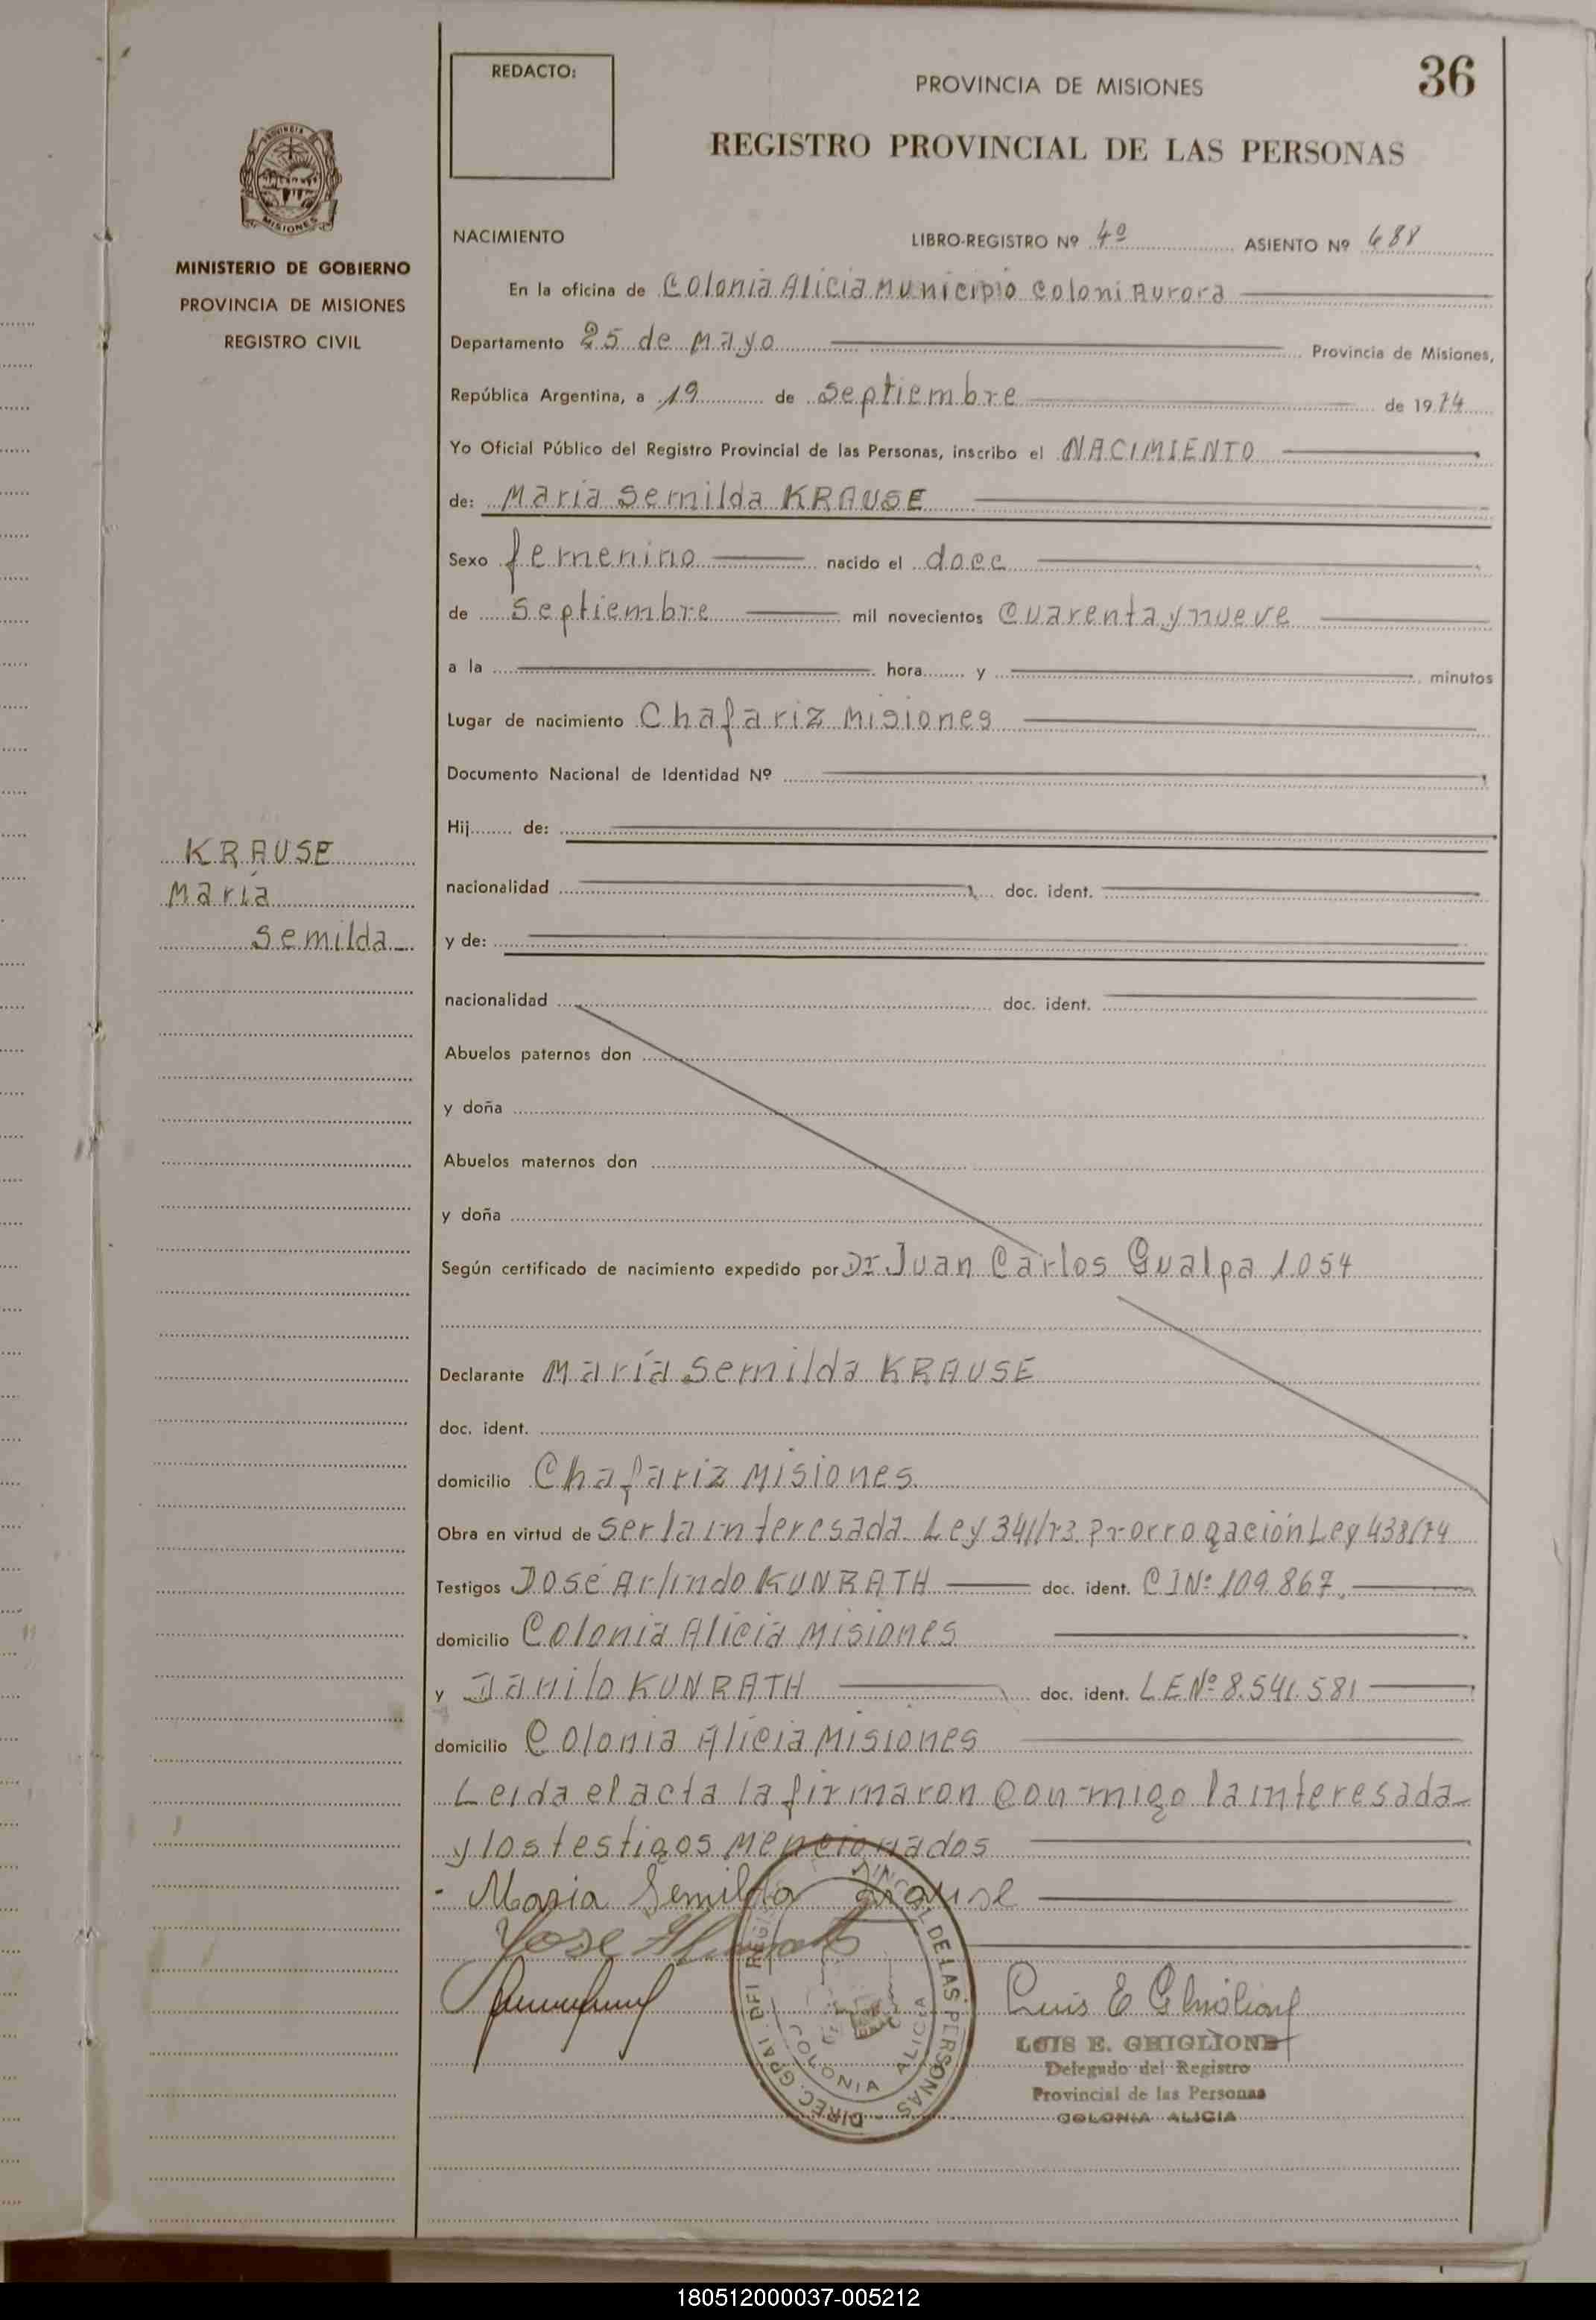 REDACTO:
PROVINCIA DE MISIONES
36
REGISTRO PROVINCIAL DE LAS PERSONAS
PROVINCIA
MISIONES
MINISTERIO DE GOBIERNO
PROVINCIA DE MISIONES
REGISTRO CIVIL
NACIMIENTO LIBRO-REGISTRO Nº 4º ASIENTO Nº 688
En la oficina de Colonia Alicia Municipio Coloni Aurora
Departamento 25 de Mayo Provincia de Misiones,
República Argentina, a 19 de Septiembre de 1974
Yo Oficial Público del Registro Provincial de las Personas, inscribo el NACIMIENTO
de: María Semilda KRAUSE
Sexo femenino nacido el doce
de Septiembre mil novecientos Cuarenta y nueve
a la hora y minutos
Lugar de nacimiento Chafariz Misiones
Documento Nacional de Identidad Nº
Hij de:
KRAUSE
María
Semilda
nacionalidad doc. ident.
y de:
nacionalidad doc. ident.
Abuelos paternos don
y doña
Abuelos maternos don
y doña
Según certificado de nacimiento expedido por Dr Juan Carlos Gualpa 1054
Declarante María Semilda KRAUSE
doc. ident.
domicilio Chafariz Misiones
Obra en virtud de ser la interesada Ley 341/73 Prorrogación Ley 438/74
Testigos José Arlindo KUNRATH doc. ident. CINº 109.867
domicilio Colonia Alicia Misiones
y Danilo KUNRATH doc. ident. LENº 8.541.581
domicilio Colonia Alicia Misiones
Leida el acta la firmaron con migo la interesada
y los testigos Mencionados
Maria Semilda Krause
Jose
DIREC. GRAL. DEL REGISTRO PROVINCIAL DE LAS PERSONAS
COLONIA ALICIA
Luis E Ghiglione
LUIS E. GHIGLIONE
Delegado del Registro
Provincial de las Personas
COLONIA ALICIA
180512000037-005212